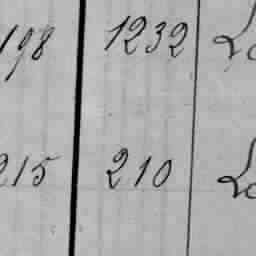 198 1232
215 210